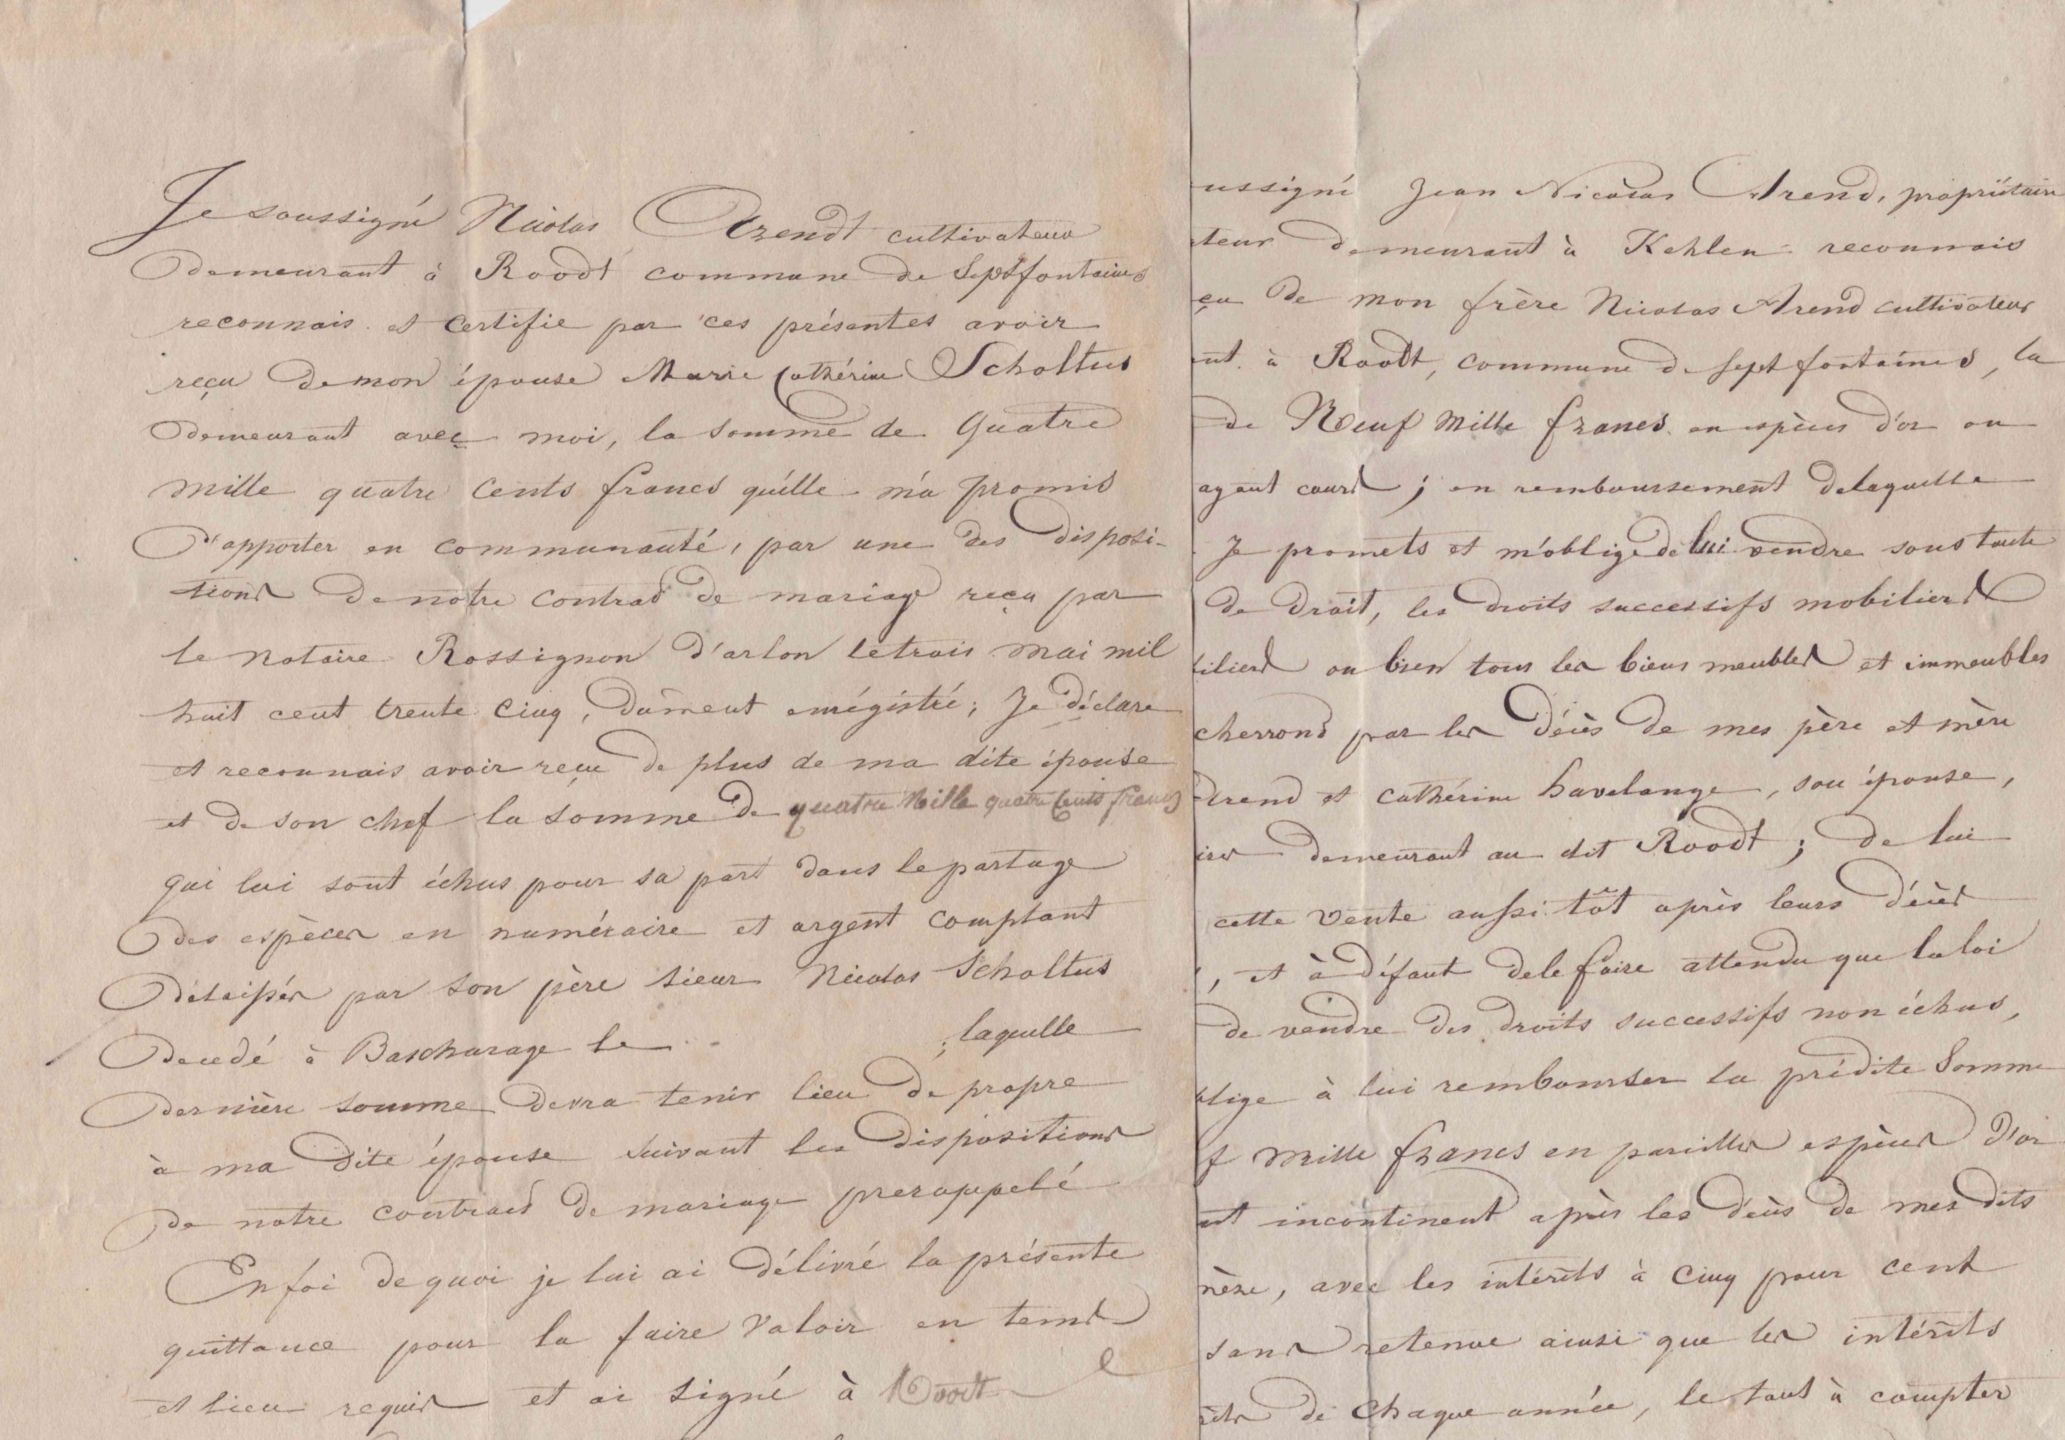 Je soussigné Nicolas Arendt cultivateur
demeurant à Roodt commune de Septfontaines
reconnais et certifie par ces présentes avoir
reçu de mon épouse Marie Cathérine Scholtus
demeurant avec moi, la somme de Quatre
mille quatre cents francs qu'elle m'a promis
d'apporter en communauté, par une des disposi-
tions de notre contrad de mariage reçu par
le notaire Rossignon d'arlon le trois mai mil
huit cent trente cinq, dument enrégistré; Je déclare
et reconnais avoir reçu de plus de ma dite épouse
et de son chef la somme de quatre Mille quatre Cents francs
qui lui sont échus pour sa part dans le partage
des espèces en numéraire et argent comptant
délaissés par son père sieur Nicolas Scholtus
decedé à Bascharage le ; laquelle
dernière somme devra tenir lieu de propre
à ma dite épouse suivant les dispositions
de notre contrad de mariage prerappelé
En foi de quoi je lui ai délivré la présente
quittance pour la faire valoir en tems
et lieu requis et ai signé à Roodt
ussigné Jean Nicolas Arend, propriétaire
teur demeurant à Kehlen reconnais
eçu de mon frère Nicolas Arend cultivateur
ant à Roodt, commune de Septfontaines, la
de Neuf Mille francs en espèces d'or ou
agent cours ; en remboursement delaquelle
Je promets et m'oblige de lui vendre sous toute
de droit, les droits successifs mobiliers
iliers ou bien tous les biens meubles et immeubles
cherrons par les décès de mes père et mère
Arend et Cathérine havelange, son épouse,
ires demeurant au dit Roodt ; de lui
cette vente aussi tôt après leurs décès
, et à défaut dele faire attendu que la loi
de vendre des droits successifs non échus,
blige à lui rembourser la prédite Somme
f Mille francs en pareilles espèces d'or
nt incontinent après les décès de mes dits
mère, avec les intérêts à cinq pour cent
sans retenue ainsi que les intérêts
rêts de chaque année, le tout à compter